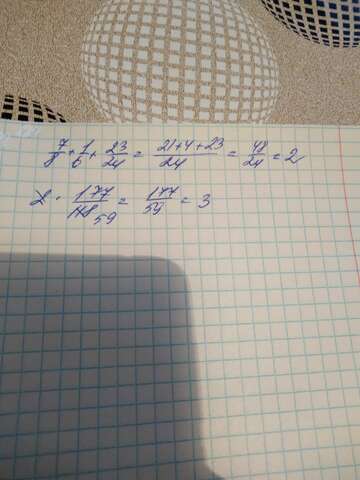 7/8 + 1/6 + 23/24 = 21+4+23/24 = 48/24 = 2
2 · 177/118 59 = 177/59 = 3